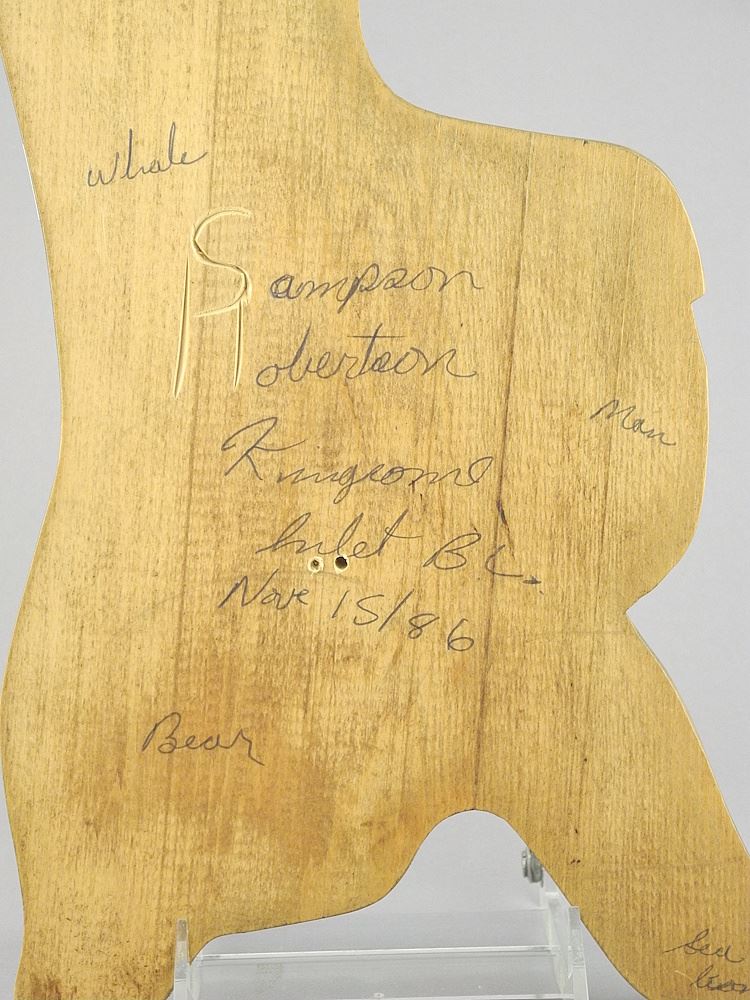 Whale
Sampson
Robertson
Man
Kingcome
Inlet BC.
Nove 15/86
Bear
Sea
lion